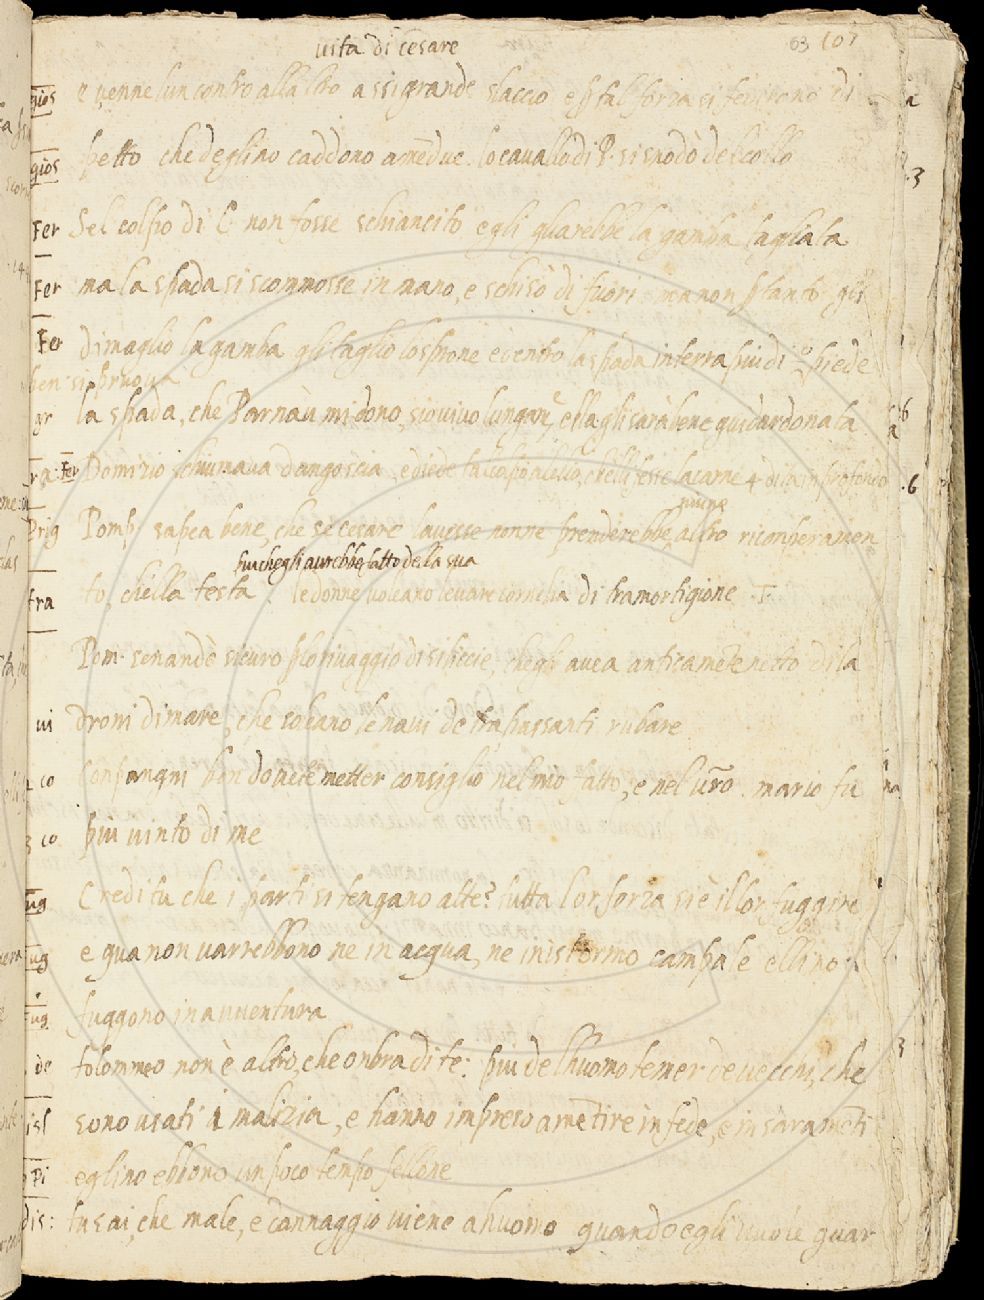 vita di cesare
63 101
gios e venne lun contro allaltro assi grande slaccio e p tal forza si feritono di
gios petto che deglino caddono amẽdue lo cavallo di P. si snodò del collo
Fer Sel colpo di C non fosse schiancito egli gliarebbe la gamba tagliata
Fer ma la spada si scommosse in mano, e schisò di fuori ma non p tanto gli
Fer dimagliò la gamba gli taglio losprone e ventro la spada interra piu di piede
ben si pruova
gr la spada, che Parnau mi dono, sio vivo lungam, ella gli sarà bene guidardonata
Fer Domizio schiumava dangoscia, e diede tal colpo a lello, che li fesse la carne 4 dita in profondo
Prig Pomp: sapea bene, che se cesare lavesse nonne prenderebbe altro ricomperamen
piu che gli avrebbe fatto della sua
fra to, chella testa. le donne voleano levare cornelia di tramortigione T.
Pom. senandò sicuro p lo rivaggio di silicie, chegli avea anticamẽte netto di la
ui droni di mare, che soleano le navi de trapassanti rubare
co Compangni ben dovete metter consiglio nel mio fatto, e nel vr̃o. mario fu
co piu vinto di me
fug Credi tu che i parti si tengano alte? tutta lor forza si è il lor fuggire
fug e qua non varrebbono ne in acqua, ne in istormo campale ellino
fug fuggono in avventura
de tolommeo non è altro, che onbra di te: piu dellhuomo temer de vecchi, che
isl sono usati i malizia, e hanno impreso a mẽtire in fede, e in saramẽti
Pi eglino ebbono un poco tempo fellone
dis: tu sai, che male, e dannaggio viene a huomo quando egli vuole guar